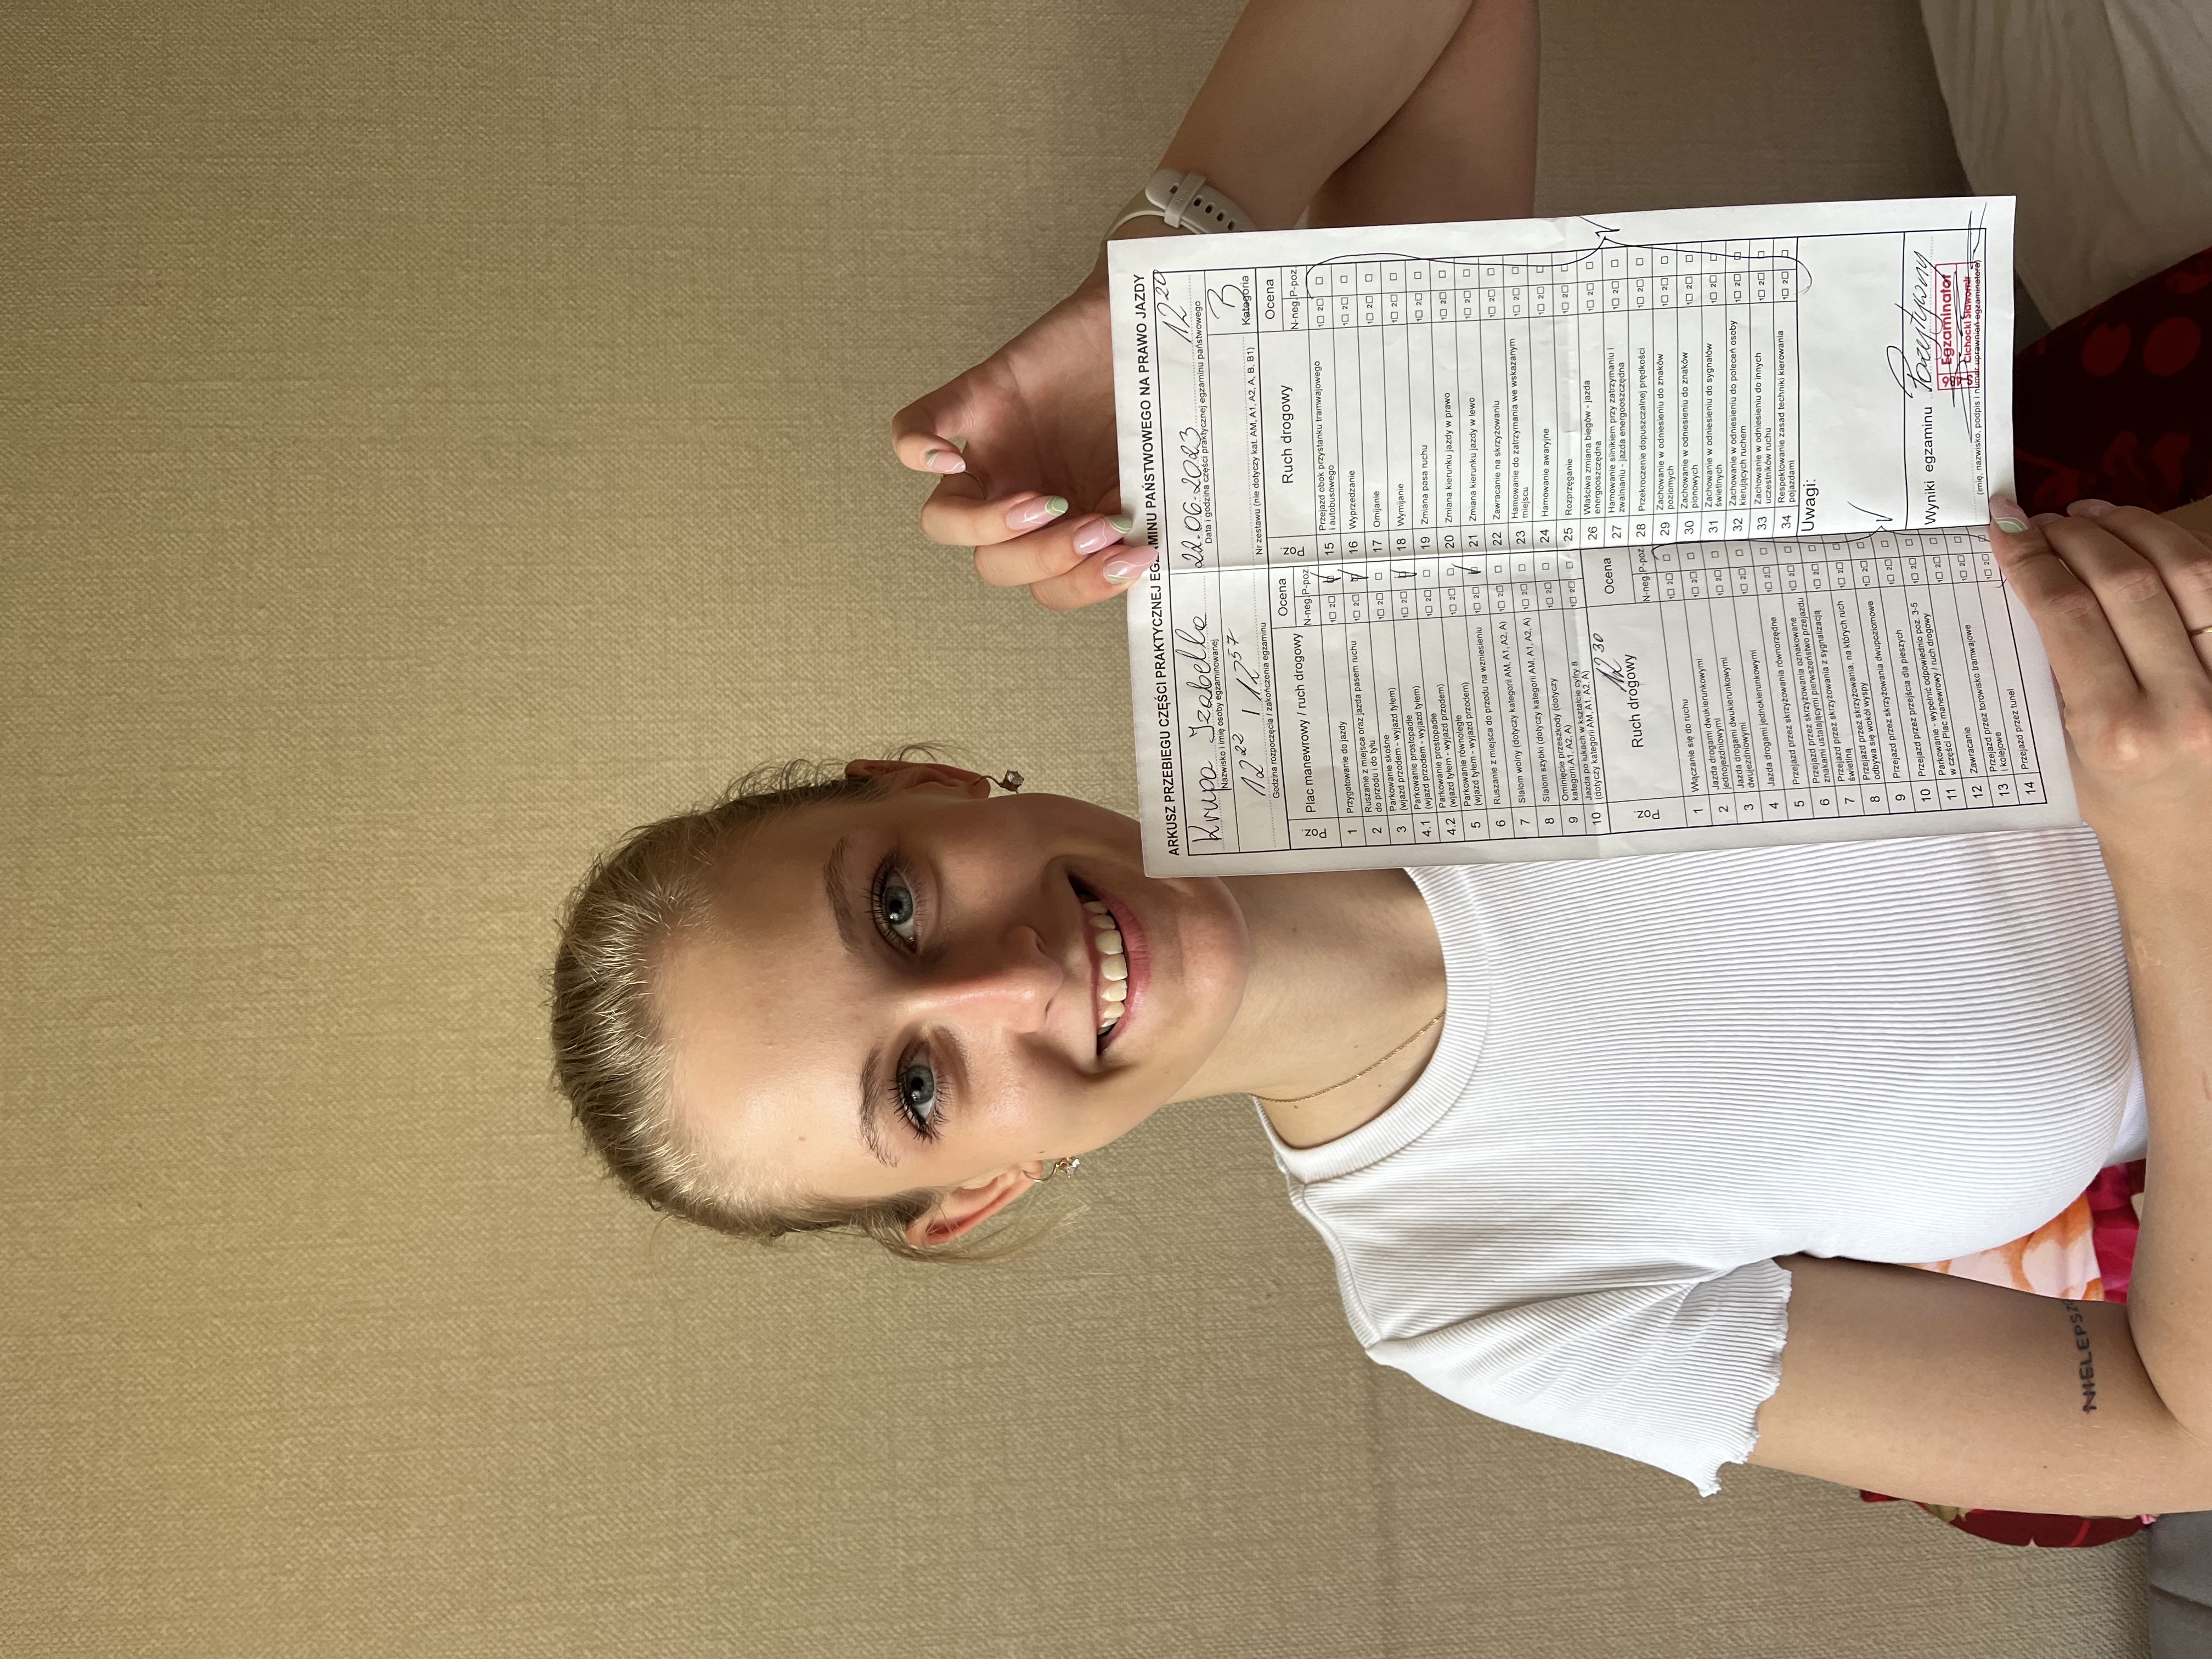 ARKUSZ PRZEBIEGU CZĘŚCI PRAKTYCZNEJ EGZAMINU PAŃSTWOWEGO NA PRAWO JAZDY
Krupa Izabella
Nazwisko i imię osoby egzaminowanej
22.06.2023 12 20
Data i godzina części praktycznej egzaminu państwowego
12 22 / 12 57
Godzina rozpoczęcia / zakończenia egzaminu
Nr zestawu (nie dotyczy kat. AM, A1, A2, A, B, B1)
B
Kategoria
Poz. Plac manewrowy / ruch drogowy Ocena
N-neg. P-poz.
1 Przygotowanie do jazdy 1 2
2 Ruszanie z miejsca oraz jazda pasem ruchu
do przodu i do tyłu 1 2
3 Parkowanie skośne
(wjazd przodem - wyjazd tyłem) 1 2
4.1 Parkowanie prostopadłe
(wjazd przodem - wyjazd tyłem) 1 2
4.2 Parkowanie prostopadłe
(wjazd tyłem - wyjazd przodem) 1 2
5 Parkowanie równoległe
(wjazd tyłem - wyjazd przodem) 1 2
6 Ruszanie z miejsca do przodu na wzniesieniu 1 2
7 Slalom wolny (dotyczy kategorii AM, A1, A2, A) 1 2
8 Slalom szybki (dotyczy kategorii AM, A1, A2, A) 1 2
9 Ominięcie przeszkody (dotyczy
kategorii A1, A2, A) 1 2
10 Jazda po łukach w kształcie cyfry 8
(dotyczy kategorii AM, A1, A2, A) 1 2
12 30
Poz. Ruch drogowy Ocena
N-neg. P-poz.
1 Włączanie się do ruchu 1 2
2 Jazda drogami dwukierunkowymi
jednojezdniowymi 1 2
3 Jazda drogami dwukierunkowymi
dwujezdniowymi 1 2
4 Jazda drogami jednokierunkowymi 1 2
5 Przejazd przez skrzyżowania równorzędne 1 2
6 Przejazd przez skrzyżowania oznakowane
znakami ustalającymi pierwszeństwo przejazdu 1 2
7 Przejazd przez skrzyżowania z sygnalizacją
świetlną 1 2
8 Przejazd przez skrzyżowania, na których ruch
odbywa się wokół wyspy 1 2
9 Przejazd przez skrzyżowania dwupoziomowe 1 2
10 Przejazd przez przejścia dla pieszych 1 2
11 Parkowanie - wypełnić odpowiednio poz. 3-5
w części Plac manewrowy / ruch drogowy 1 2
12 Zawracanie 1 2
13 Przejazd przez torowisko tramwajowe
i kolejowe 1 2
14 Przejazd przez tunel 1 2
Poz. Ruch drogowy Ocena
N-neg. P-poz.
15 Przejazd obok przystanku tramwajowego
i autobusowego 1 2
16 Wyprzedzanie 1 2
17 Omijanie 1 2
18 Wymijanie 1 2
19 Zmiana pasa ruchu 1 2
20 Zmiana kierunku jazdy w prawo 1 2
21 Zmiana kierunku jazdy w lewo 1 2
22 Zawracanie na skrzyżowaniu 1 2
23 Hamowanie do zatrzymania we wskazanym
miejscu 1 2
24 Hamowanie awaryjne 1 2
25 Rozprzęganie 1 2
26 Właściwa zmiana biegów - jazda
energooszczędna 1 2
27 Hamowanie silnikiem przy zatrzymaniu i
zwalnianiu - jazda energooszczędna 1 2
28 Przekroczenie dopuszczalnej prędkości 1 2
29 Zachowanie w odniesieniu do znaków
poziomych 1 2
30 Zachowanie w odniesieniu do znaków
pionowych 1 2
31 Zachowanie w odniesieniu do sygnałów
świetlnych 1 2
32 Zachowanie w odniesieniu do poleceń osoby
kierujących ruchem 1 2
33 Zachowanie w odniesieniu do innych
uczestników ruchu 1 2
34 Respektowanie zasad techniki kierowania
pojazdami 1 2
Uwagi:
Wyniki egzaminu Pozytywny
S-486 Egzaminator
Cichocki Sławomir
(imię, nazwisko, podpis i numer uprawnień egzaminatora)
NIELEPSZ